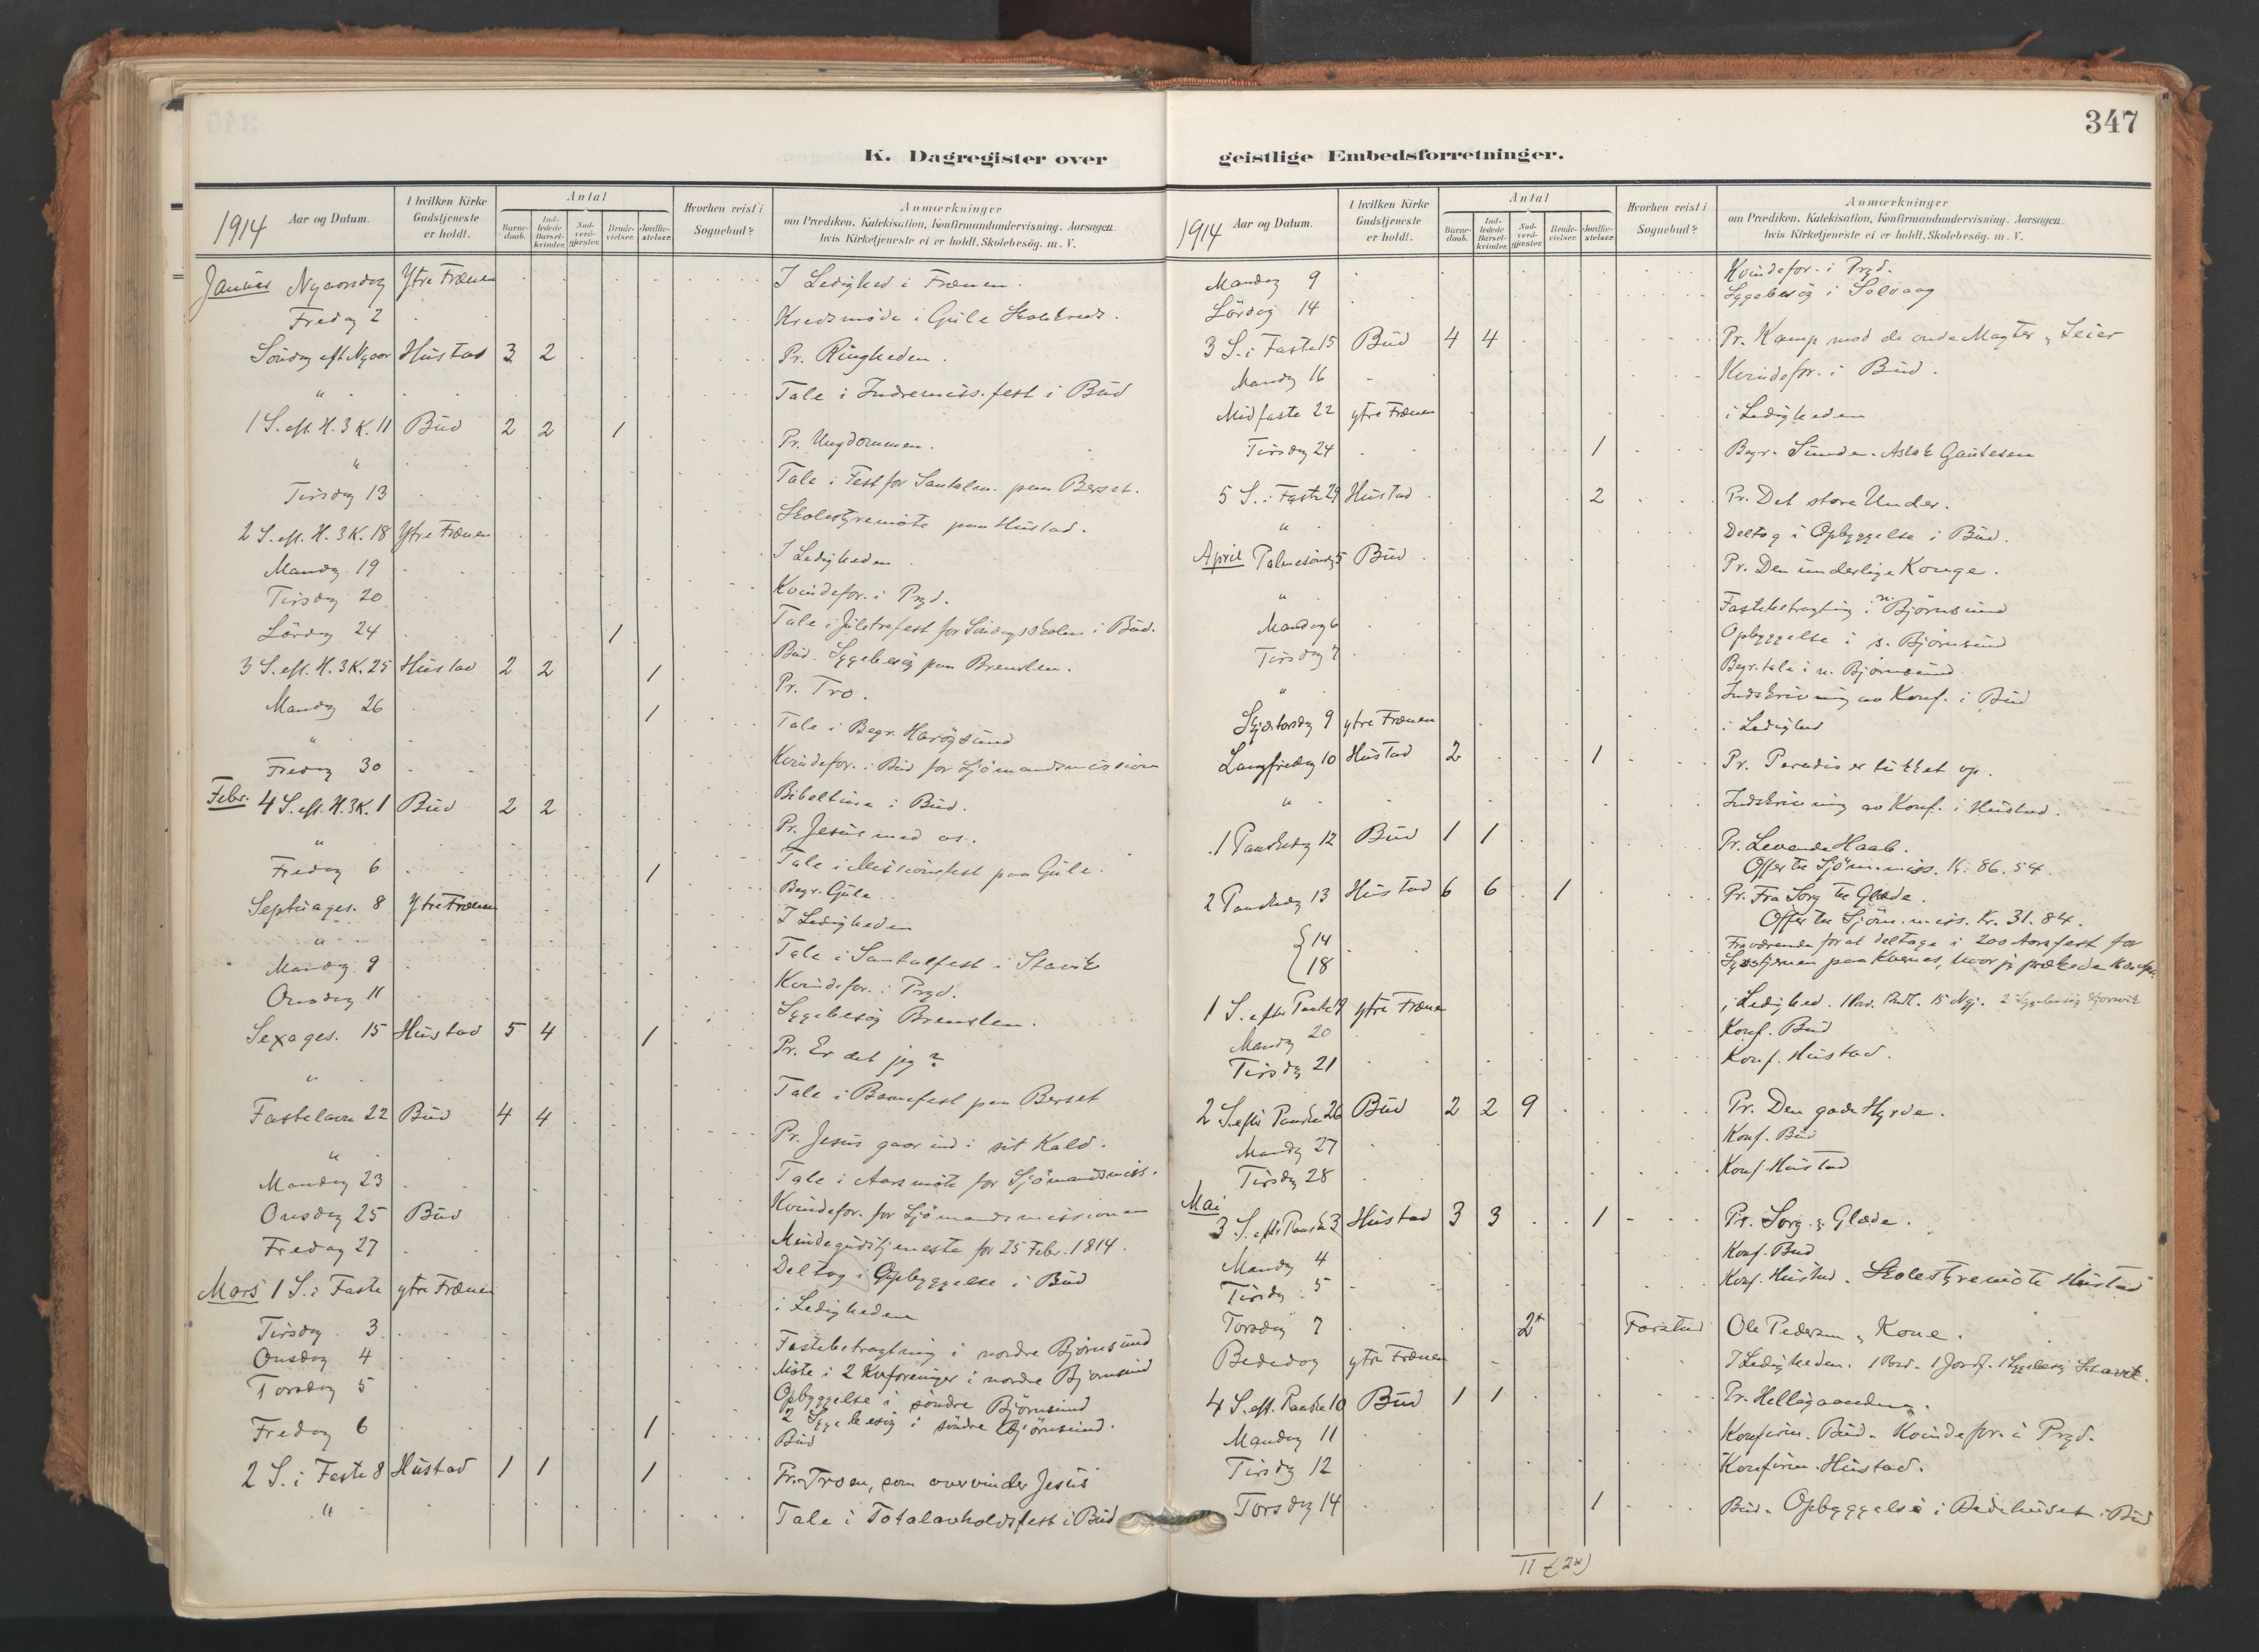 347
K. Dagregister over
geistlige Embedsforretninger.
1914 Aar og Datum. I hvilken Kirke Gudstjeneste er holdt. Antal Barnedaab. Indledede Barselkvinder. Nadverdgjester. Brudevielser. Jordfæstelser. Hvorhen reist i Sognebud? Anmærkninger om Prædiken, Katekisation, Konfirmandundervisning, Aarsagen hvis Kirketjeneste ei er holdt, Skolebesög, m. V.
Januar Nyaarsdag Ytre Frænen I Ledighed i Frænen.
Fredag 2 Kredsmöde i Gule Skolekreds.
Söndag eft Nyaar Hustad 3 2 Pr. Ringheden.
" Tale i Indremiss.fest i Bud
1 S. eft. H. 3 K. 11 Bud 2 2 1 Pr. Ungdommen.
" Tale i Fest for Santalm. paa Berset.
Tirsdag 13 Skolestyremöte paa Hustad.
2 S. eft. H. 3 K. 18 Ytre Frænen I Ledigheden
Mandag 19 Kvindefor. i Prgd.
Tirsdag 20 Tale i Juletrefest for Söndagsskolen i Bud.
Lördag 24 1 Bud. Sygebesög paa Brenslen.
3 S. eft. H. 3 K. 25 Hustad 2 2 1 Pr. Tro.
Mandag 26 1 Tale i Begr. Harögsund
" Kvindefor. i Bud for Sjömandsmission
Fredag 30 Bibeltime i Bud.
Febr. 4 S. eft. H. 3 K. 1 Bud 2 2 Pr. Jesus med os.
" Tale i Missionsfest paa Gule.
Fredag 6 1 Begr. Gule
Septuages. 8 Ytre Frænen I Ledigheden
" Tale i Santalfest i Stavik
Mandag 9 Kvindefor. i Prgd.
Onsdag 11 Sygebesög Brenslen.
Sexages. 15 Hustad 5 4 1 Pr. Er det jeg?
" Tale i Barnefest paa Berset
Fastelavn 22 Bud 4 4 Pr. Jesus gaar ind i sit Kald.
" Tale i Aarsmöte for Sjömandsmiss.
Mandag 23 Kvindefor. for Sjömandsmissionen
Onsdag 25 Bud Mindegudstjeneste for 25 Febr. 1814.
Fredag 27 Deltog i Opbyggelse i Bud
Mars 1 S. i Faste ytre Frænen i Ledigheden
Tirsdag 3 Fastebetragtning i nordre Björnsund
Onsdag 4 Möte i 2 Kvforeninger i nordre Björnsund
Torsdag 5 Opbyggelse i söndre Björnsund
2 Sygebesög i söndre Björnsund.
Fredag 6 1 Bud
2 S. i Faste 8 Hustad 1 1 1 Pr. Troen, som overvinder Jesus
" Tale i Totalavholdsfest i Bud
1914 Aar og Datum. I hvilken Kirke Gudstjeneste er holdt. Antal Barnedaab. Indledede Barselkvinder. Nadverdgjester. Brudevielser. Jordfæstelser. Hvorhen reist i Sognebud? Anmærkninger om Prædiken, Katekisation, Konfirmandundervisning, Aarsagen hvis Kirketjeneste ei er holdt, Skolebesög, m. V.
Mandag 9 Kvindefor. i Prgd.
Lördag 14 Sygebesög i Solvaag
3 S. i Faste 15 Bud 4 4 Pr. Kamp mod de onde Magter, Seier
Mandag 16 Kvindefor. i Bud.
Midfaste 22 ytre Frænen i Ledigheden
Tirsdag 24 1 Begr. Aslak Gautesen
5 S. i Faste 29 Hustad 2 Pr. Det store Under.
" Deltog i Opbyggelse i Bud.
April Palmesöndag 5 Bud Pr. Den underlige Konge.
" Fastebetragtning i n. Björnsund
Mandag 6 Opbyggelse i s. Björnsund
Tirsdag 7 Begr.tale i n. Björnsund
" Indskrivning av Konf. i Bud
Skjærtorsdag 9 ytre Frænen i Ledighed
Langfredag 10 Hustad 2 1 Pr. Paradis er lukket op.
" Indskrivning av Konf. i Hustad.
1 Paaskedag 12 Bud 1 1 Pr. Levende Haab.
Offer til Sjöm.miss. Kr. 86.54.
2 Paaskedag 13 Hustad 6 6 1 Pr. Fra Sorg til Glæde.
Offer til Sjöm.miss. Kr. 31.84.
14 Fraværende for at deltage i 200 Aarsfest for
18 paa Kværnes, hvor jeg prækede
1 S. efter Paaske 19 ytre Frænen i Ledighed.
Mandag 20 Konf. Bud
Tirsdag 21 Konf. Hustad.
2 S. efter Paaske 26 Bud 2 2 9 Pr. Den gode Hyrde.
Mandag 27 Konf. Bud
Tirsdag 28 Konf. Hustad
Mai
3 S. eft. Paaske 3 Hustad 3 3 1 Pr. Sorg og Glæde.
Mandag 4 Konf. Bud
Tirsdag 5 Konf. Hustad. Skolestyremöte Hustad
Torsdag 7 2* Farstad Ole Pedersen og Kone.
Bededag ytre Frænen I Ledigheden. 1 Jordf. 1 Sygebesög Stavik.
4 S. eft. Paaske 10 Bud 1 1 Pr. Helligaanden.
Mandag 11 Konfirm. Bud. Kvindefor. i Prgd.
Tirsdag 12 Konfirm. Hustad.
Torsdag 14 1 Bud. Opbyggelse i Bedehuset i Bud
11 (2*)